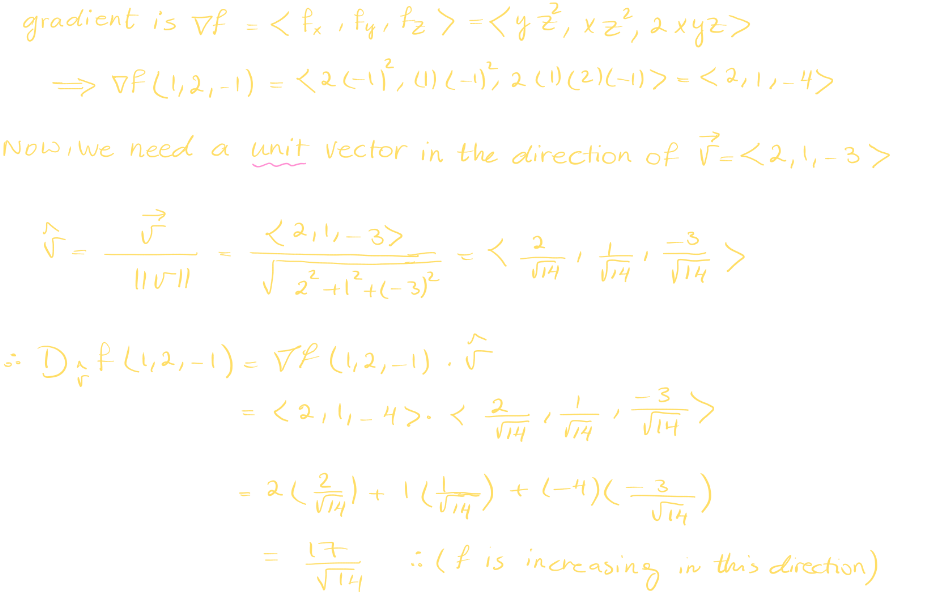 gradient is ∇f = < fx , fy , fz > = < y z², x z², 2xyz >
⟹ ∇f (1,2,-1) = < 2(-1)², (1)(-1)², 2(1)(2)(-1) > = < 2,1,-4 >
Now, we need a unit vector in the direction of v⃗ = < 2,1,-3 >
v̂ = v⃗ / ||v|| = < 2,1,-3 > / √(2²+1²+(-3)²) = < 2/√14 , 1/√14 , -3/√14 >
∴ D_v̂ f (1,2,-1) = ∇f (1,2,-1) · v̂
= < 2,1,-4 > · < 2/√14 , 1/√14 , -3/√14 >
= 2(2/√14) + 1(1/√14) + (-4)(-3/√14)
= 17/√14 ∴ (f is increasing in this direction)